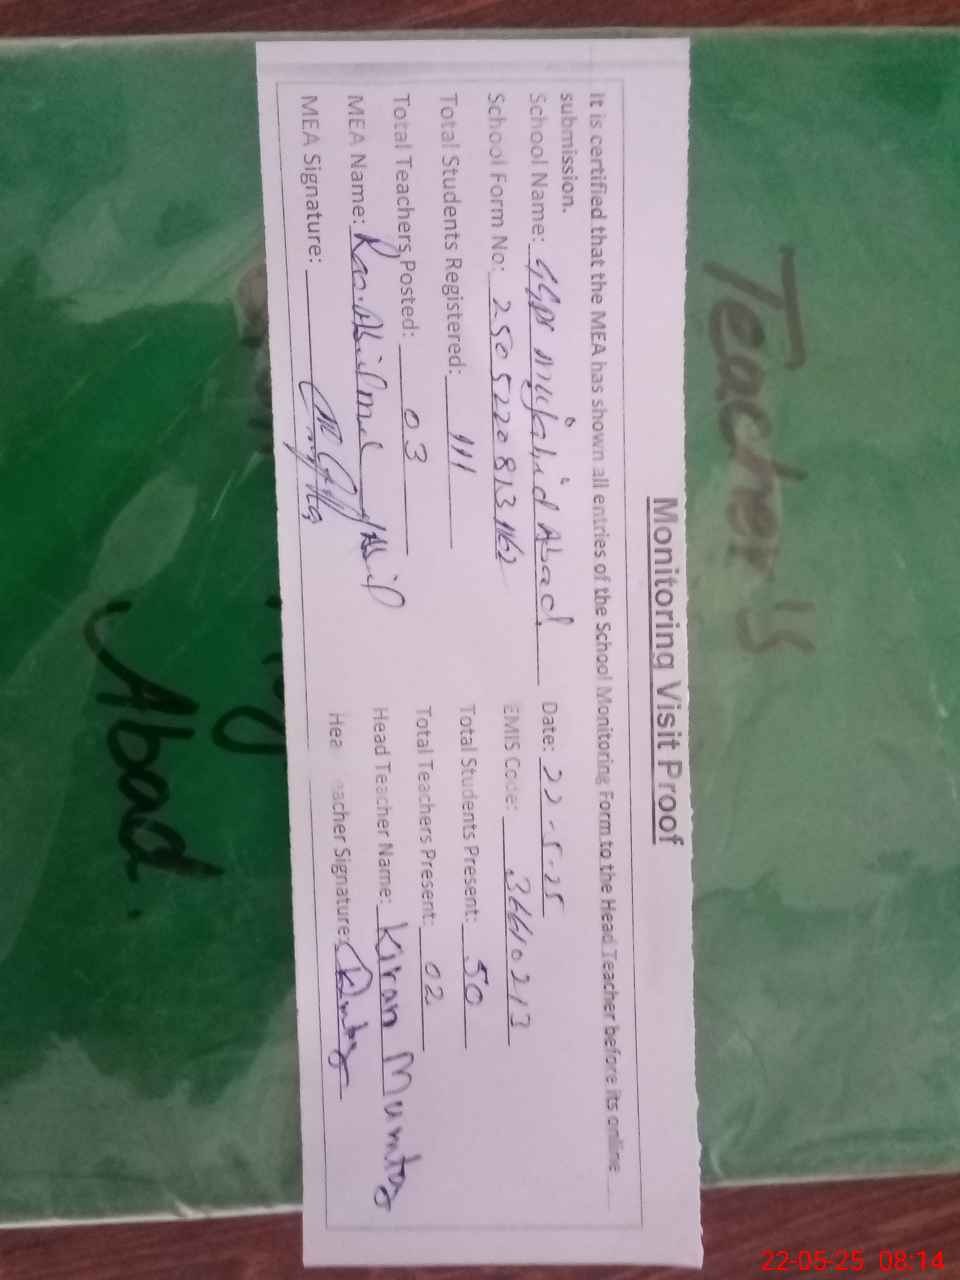 Monitoring Visit Proof
It is certified that the MEA has shown all entries of the School Monitoring Form to the Head Teacher before its online
submission.
School Name: Mujahid Abad. Date: 22-5-25
School Form No: EMIS Code: 36610213
Total Students Registered: 111 Total Students Present: 50
Total Teachers Posted: 03 Total Teachers Present: 02
MEA Name: Head Teacher Name: Kiran Mumtaz
MEA Signature: Hea acher Signature:
Teacher's
Abad.
22-05-25 08:14